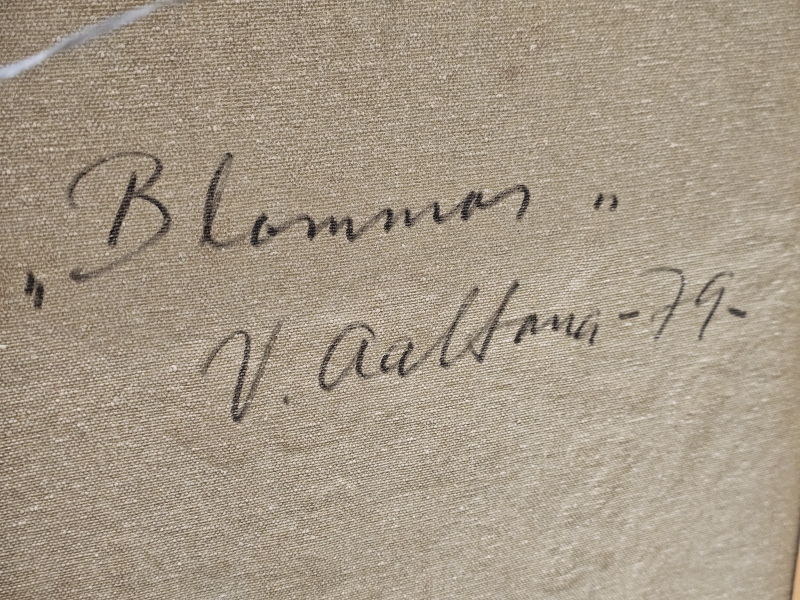 „Blommor„
V. Aaltona -79-